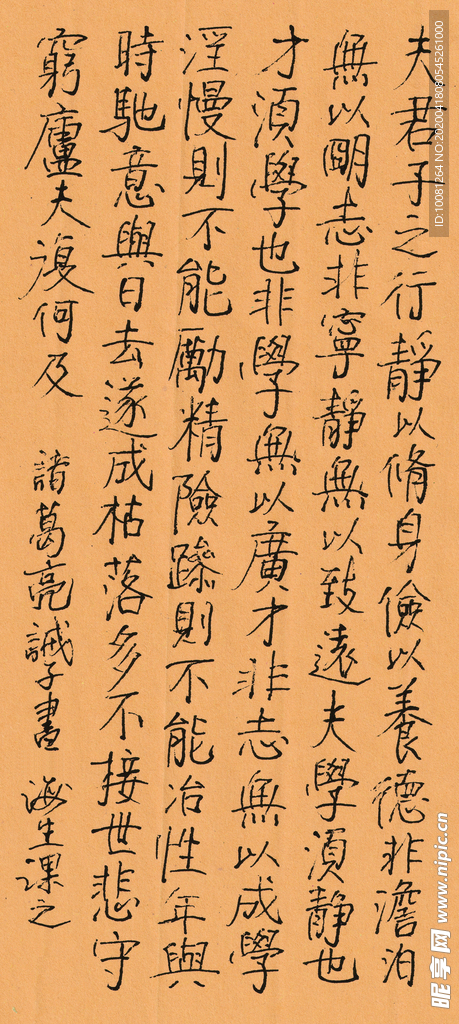 夫君子之行靜以脩身儉以養德非澹泊
無以明志非寧靜無以致遠夫學須靜也
才須學也非學無以廣才非志無以成學
淫慢則不能勵精險躁則不能冶性年與
時馳意與日去遂成枯落多不接世悲守
窮廬夫復何及 諸葛亮誡子書 海生課之
ID:10081264 NO:20200418080545261000
昵享网 www.nipic.cn